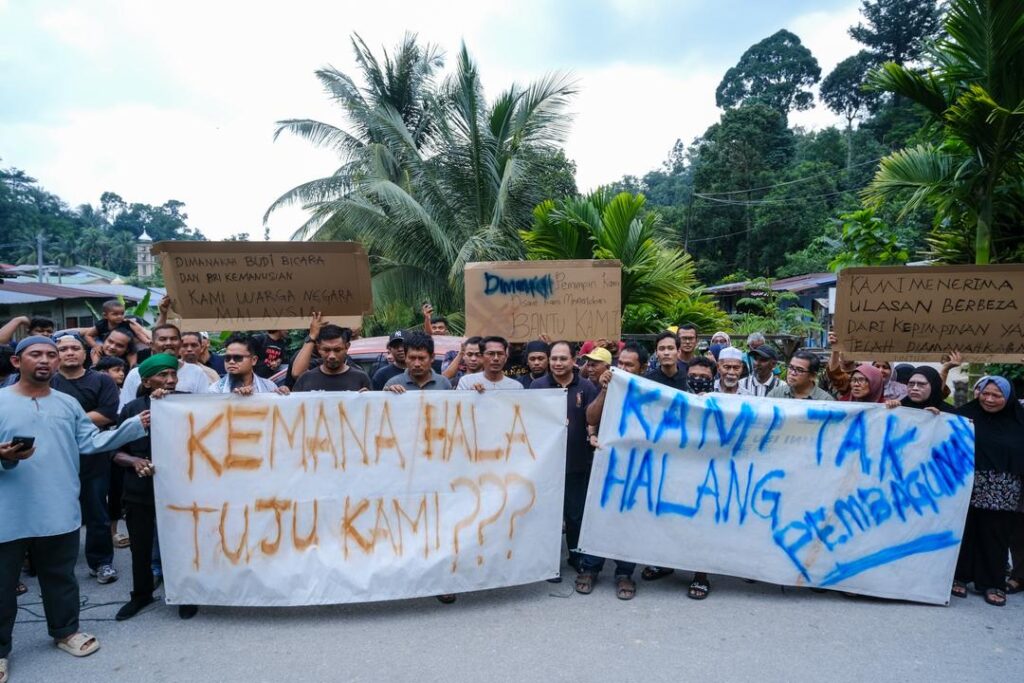 DIMANAKAH BUDI BICARA
DAN PRI KEMANUSIAN
KAMI WARGA NEGARA
MALAYSIA
Dimanakah Pemimpin Kami
Disaat Kami Memerlukan
BANTU KAMI
KAMI MENERIMA
ULASAN BERBEZA
DARI KEPIMPINAN YA
TELAH DIAMANAHKA
KEMANA HALA
TUJU KAMI???
KAMI TAK
HALANG
PEMBAGUNAN